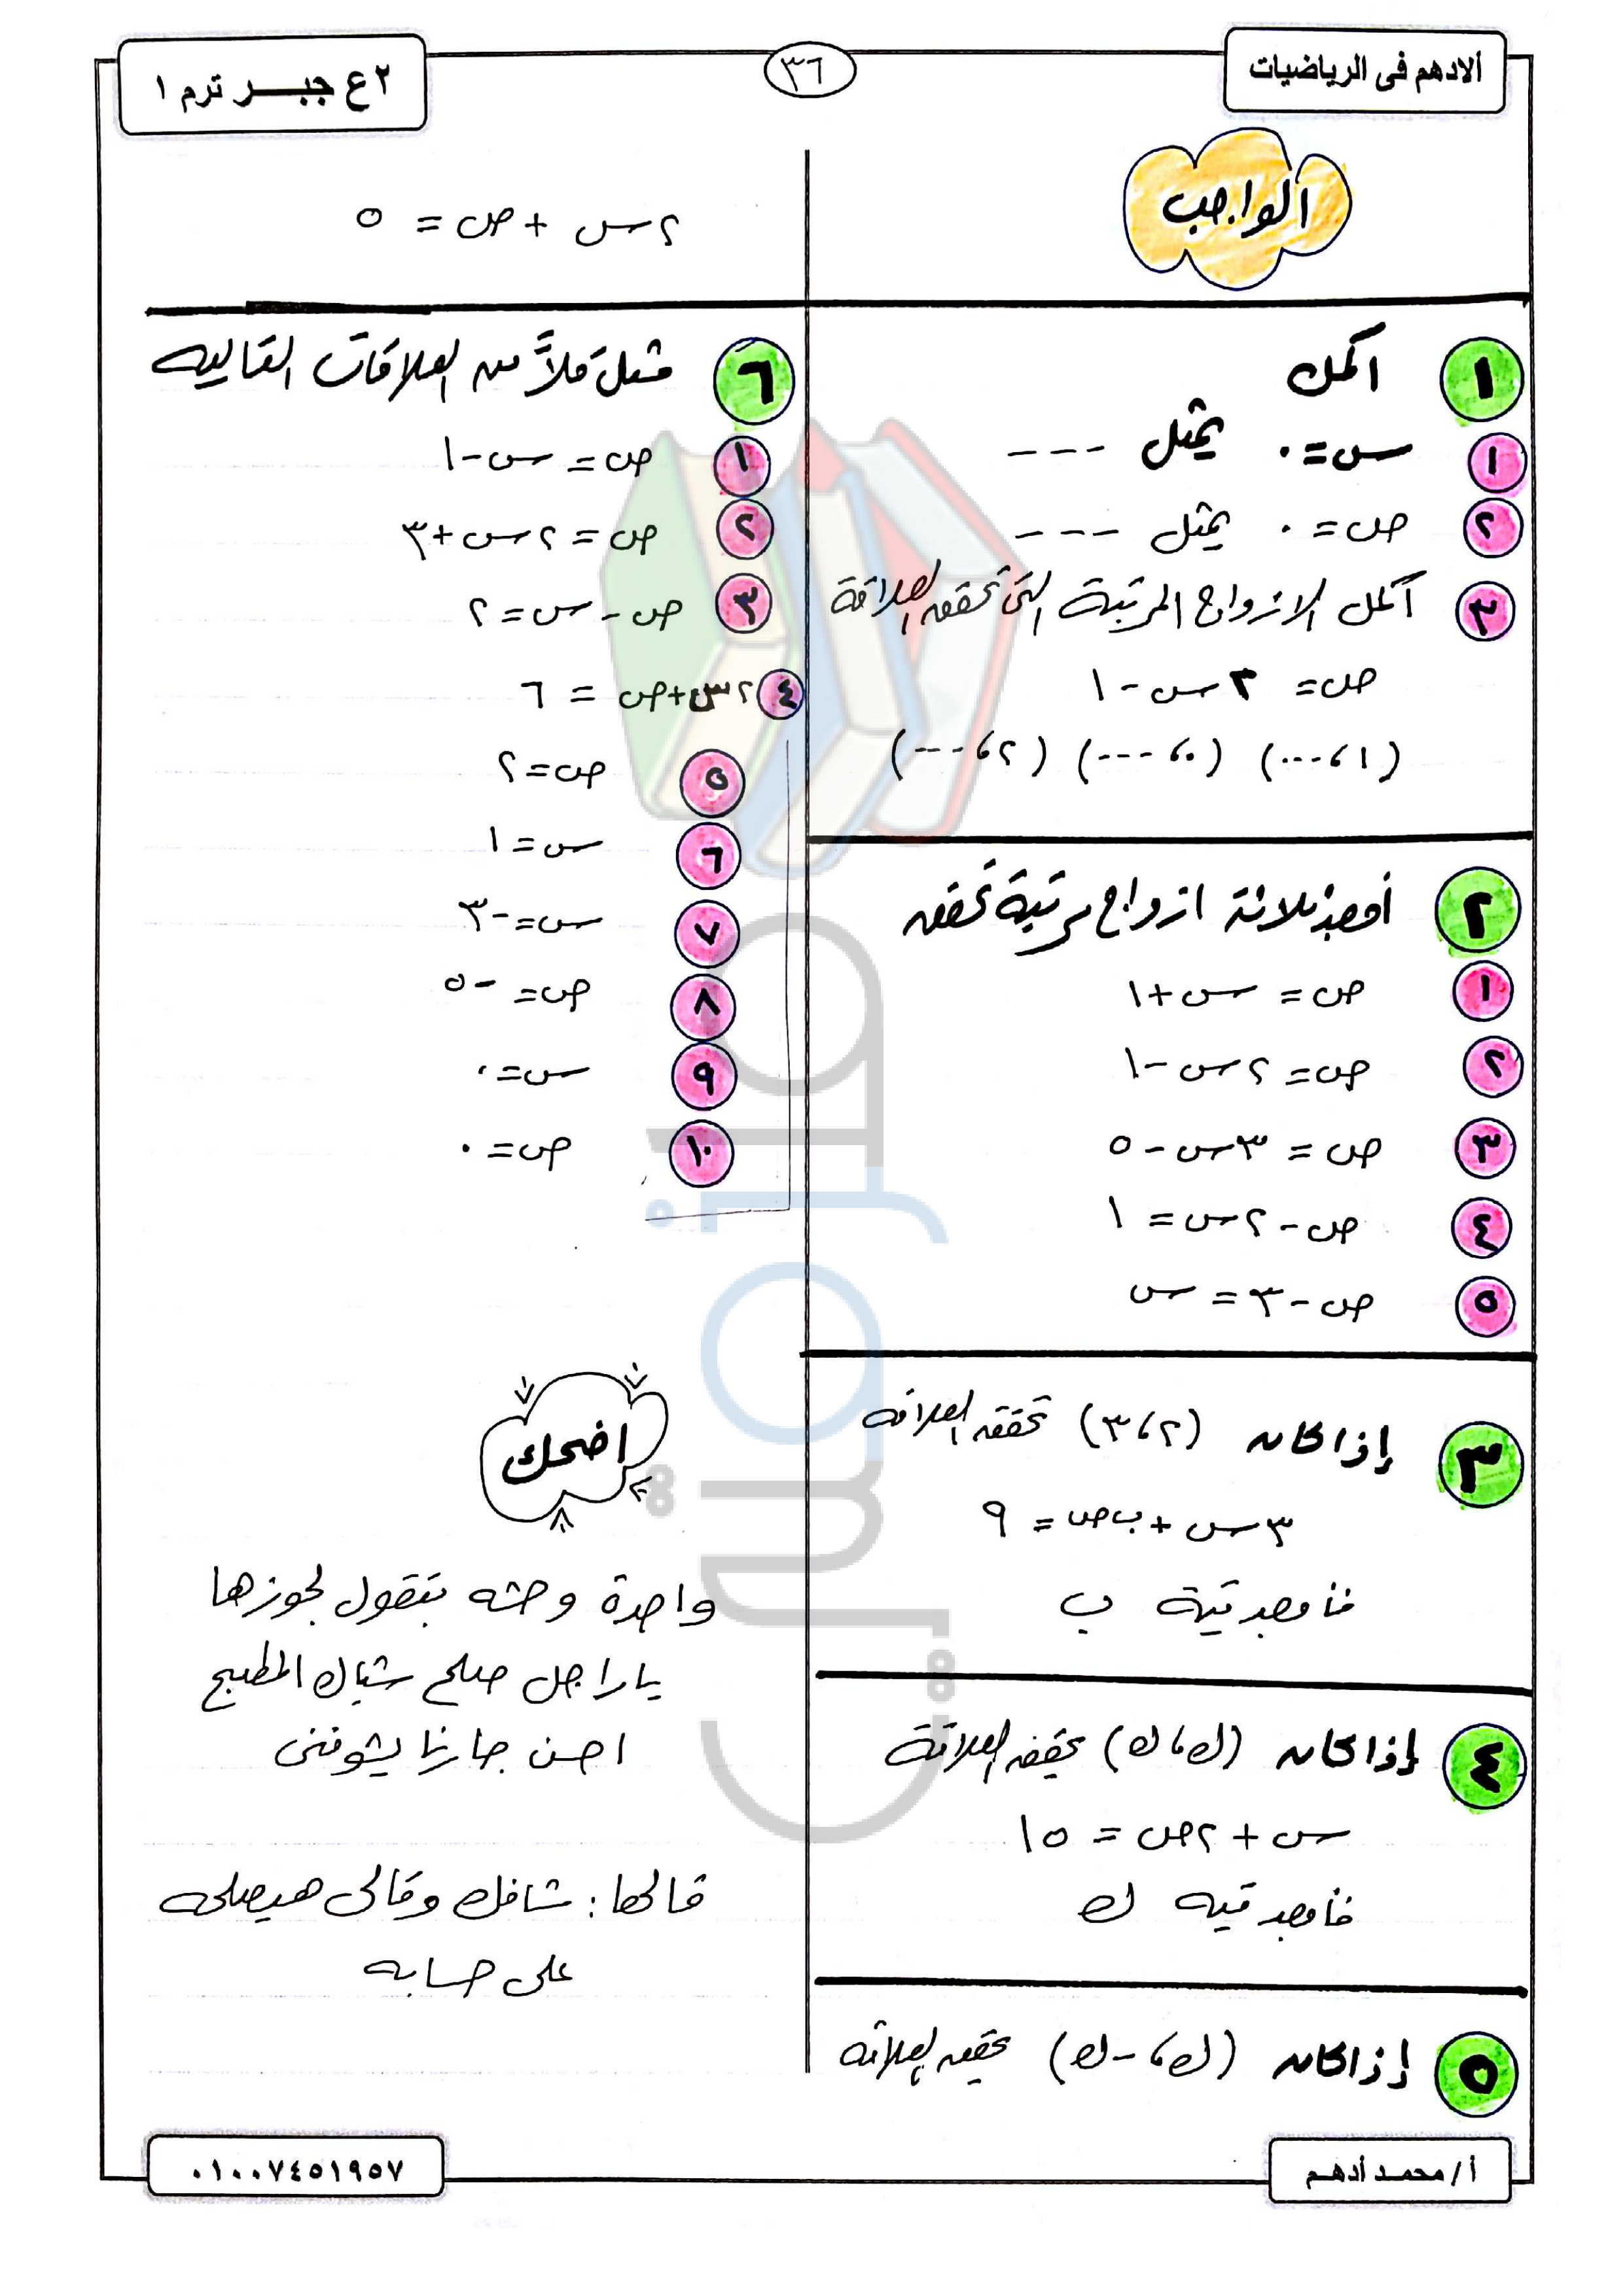 ألادهم فى الرياضيات
٣٦
٢ع جبــر ترم ١
الواجب
١ اكمل
١ س = ٠ يمثل ---
٢ ص = ٠ يمثل ---
٣ أكمل الازواج المرتبة التى تحقق العلاقة
ص = ٣س - ١
(١، ...) (٠، ---) (٢، ---)
٢ أوجد ثلاثة ازواج مرتبة تحقق
١ ص = س + ١
٢ ص = ٢س - ١
٣ ص = ٣س - ٥
٤ ص - ٢س = ١
٥ ص - ٣ = س
٣ إذا كان (٢، ٣) تحقق العلاقة
٣س + ب ص = ٩
فأوجد قيمة ب
٤ إذا كان (ك، ك) يحقق العلاقة
س + ٢ص = ١٥
فأوجد قيمة ك
٥ إذا كان (ك، -ك) يحقق العلاقة
٢س + ص = ٥
٦ مثل كلاً من العلاقات التالية
١ ص = س - ١
٢ ص = ٢س + ٣
٣ ص - س = ٢
٤ ٢س + ص = ٦
٥ ص = ٢
٦ س = ١
٧ س = -٣
٨ ص = -٥
٩ س = ٠
١٠ ص = ٠
اضحك
واحدة وحشه بتقول لجوزها
ياراجل صلح شباك المطبخ
احسن جارنا يشوفنى
قالها: شافك وقالى هيصلحه
على حسابه
مذكرة جاهزة
أ / محمـد أدهـم
٠١٠٠٧٤٥١٩٥٧